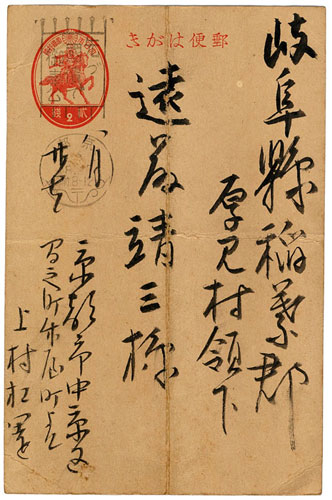 郵便はがき
岐阜縣稲葉郡
厚見村領下
遠藤靖三様
八月
廿七
京都市中京区
間之町竹屋町上ル
上村松園
2